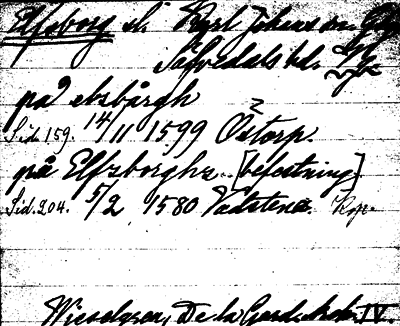 Elfsborg sl. Kyrl. Johans sn.
Säfvedals hd.
på elzbårgh
Sid. 159. 14/11 1599 Östorp.
på Elfzborghz [befästning]
Sid. 204. 5/2 1580 Vadstena. Kop.
Wieselgren, De la Gard. Ark. IV.